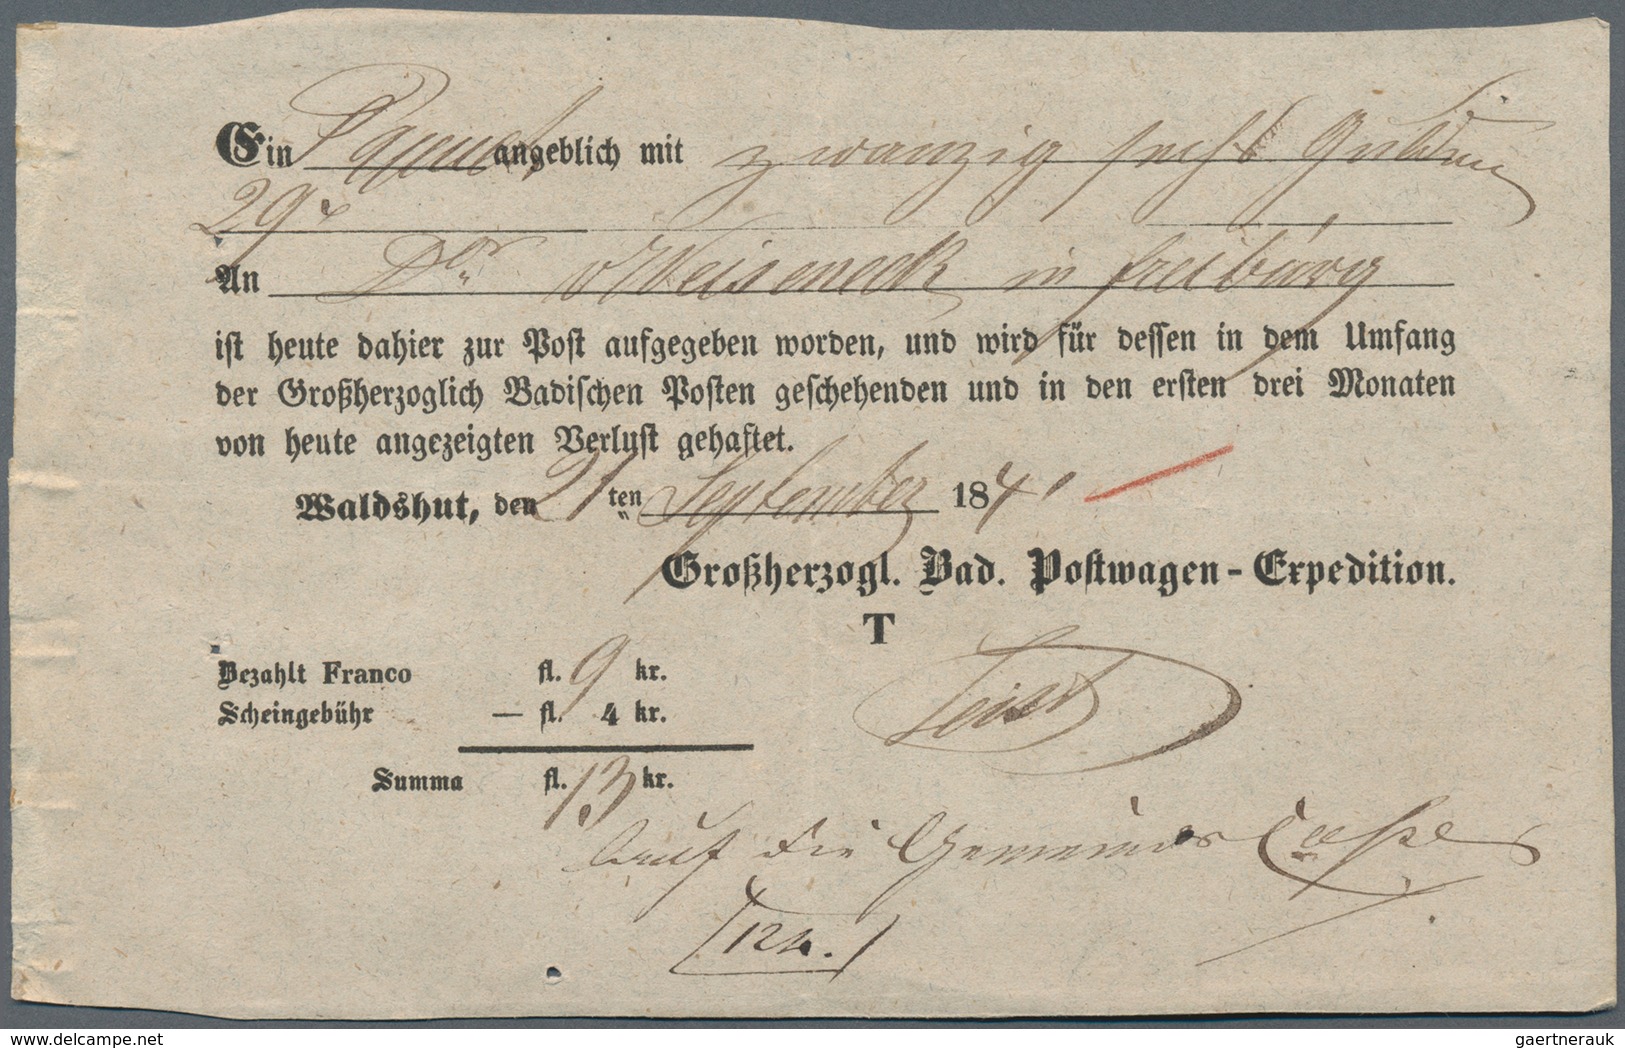 Ein Paquet angeblich mit zwanzig sechs Gulden
29 x
An Dor Weiseneck in Freiburg
ist heute dahier zur Post aufgegeben worden, und wird für dessen in dem Umfang
der Großherzoglich Badischen Posten geschehenden und in den ersten drei Monaten
von heute angezeigten Verlust gehaftet.
Waldshut, den 21 ten September 1841
Großherzogl. Bad. Postwagen-Expedition.
T
Bezahlt Franco fl. 9 kr.
Scheingebühr — fl. 4 kr.
Summa fl. 13 kr.
auf die Gemeinds Casse
124.
www.delcampe.net
gaertnerauk